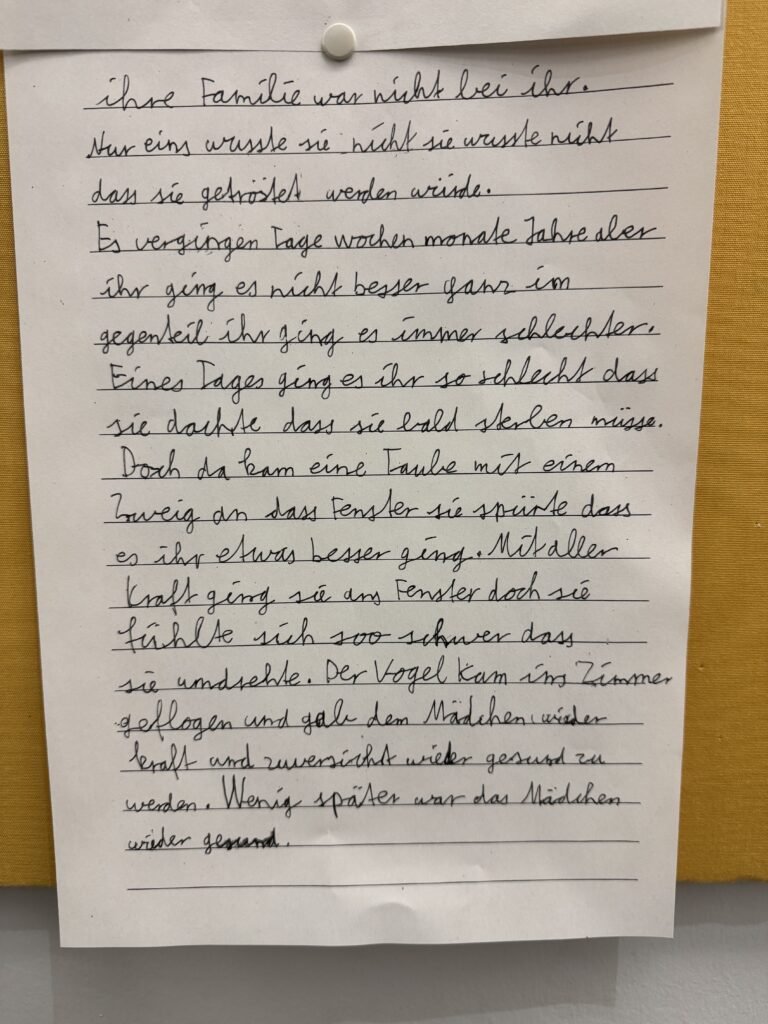 ihre Familie war nicht bei ihr.
Nur eins wusste sie nicht sie wusste nicht
dass sie getröstet werden würde.
Es vergingen Tage wochen monate Jahre aber
ihr ging es nicht besser ganz im
gegenteil ihr ging es immer schlechter.
Eines Tages ging es ihr so schlecht dass
sie dachte dass sie bald sterben müsse.
Doch da kam eine Taube mit einem
Zweig an dass Fenster sie spürte dass
es ihr etwas besser ging. Mit aller
Kraft ging sie ans Fenster doch sie
fühlte sich soo schwer dass
sie umdrehte. Der Vogel kam ins Zimmer
geflogen und gab dem Mädchen wieder
kraft und zuversicht wieder gesund zu
werden. Wenig später war das Mädchen
wieder gesund.